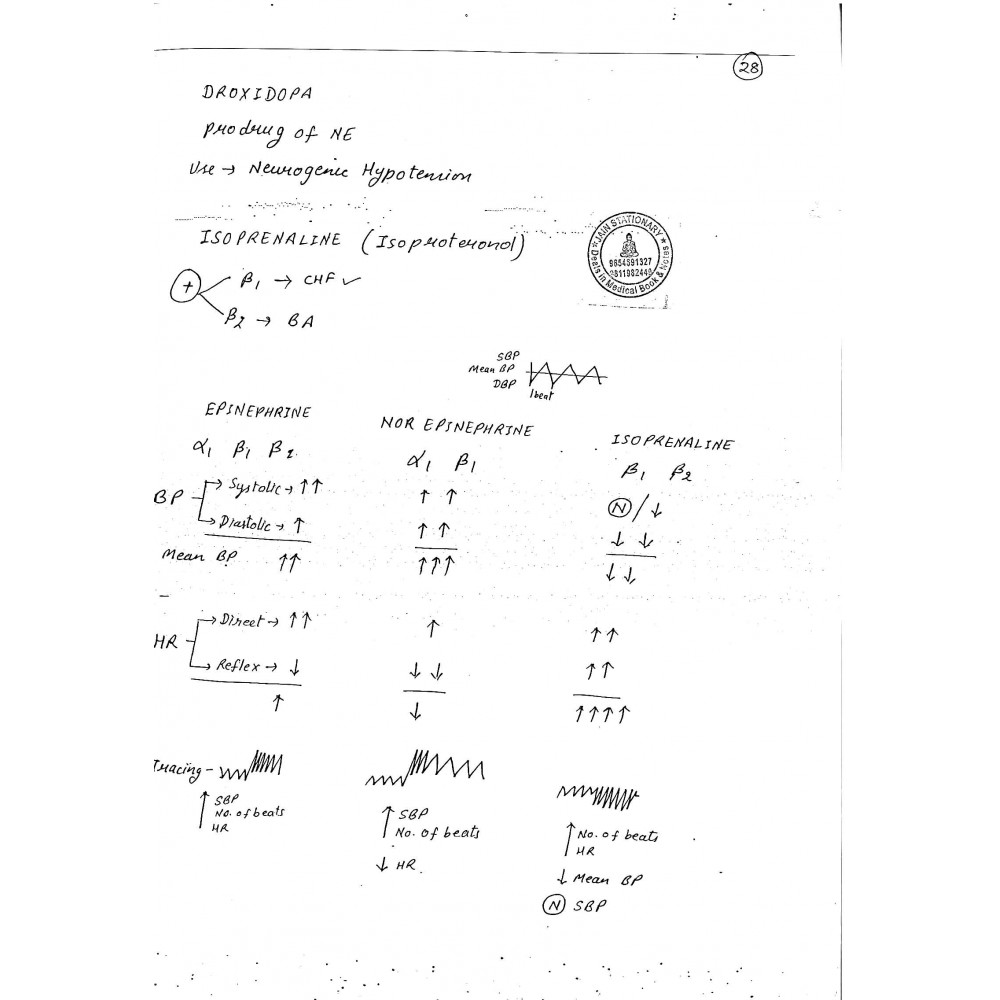 28
DROXIDOPA
prodrug of NE
Use → Neurogenic Hypotension
ISOPRENALINE (Isoproteronol)
JAIN STATIONARY
9654691327
9811982448
Deals in Medical Book & Notes
+ β1 → CHF ✓
β2 → BA
SBP
Mean BP
DBP
1 beat
EPINEPHRINE NOR EPINEPHRINE ISOPRENALINE
α1 β1 β2 α1 β1 β1 β2
BP Systolic → ↑↑ ↑ ↑ N/↓
Diastolic → ↑ ↑ ↑ ↓ ↓
Mean BP ↑↑ ↑↑↑ ↓↓
HR Direct → ↑↑ ↑ ↑↑
Reflex → ↓ ↓ ↓ ↑↑
↑ ↓ ↑↑↑↑
Tracing -
↑ SBP
No. of beats
HR
↑ SBP
No. of beats
↓ HR
↑ No. of beats
HR
↓ Mean BP
N SBP